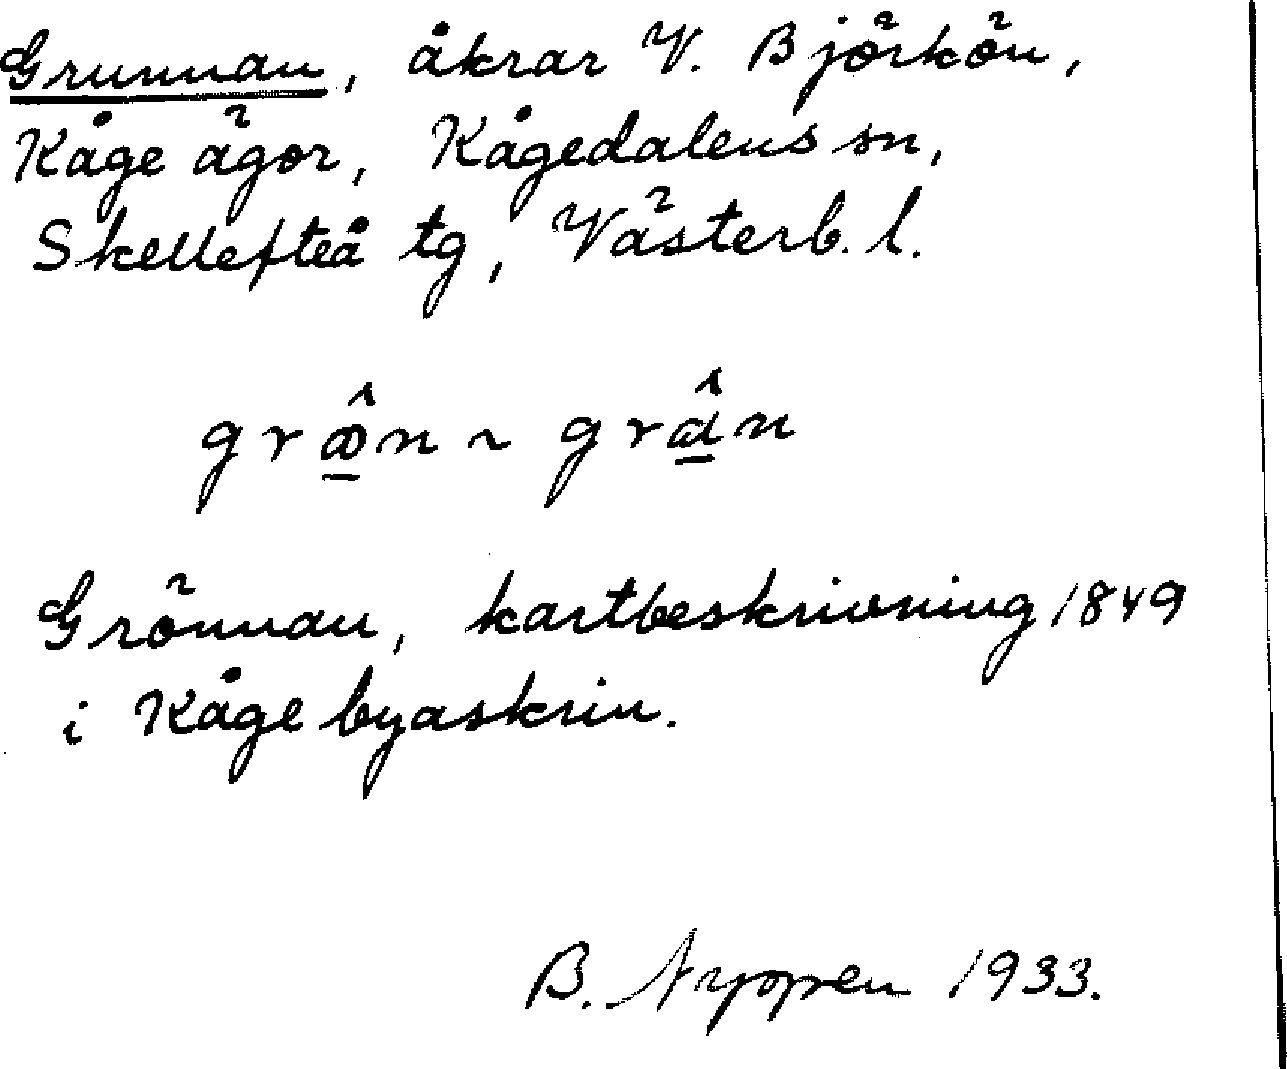 Grunnan, åkrar V. Björkön,
Kåge ägor, Kågedalens sn,
Skellefteå tg, Västerb. l.
Grönnan, kartbeskrivning 1849
i Kåge byaskrin.
B. Nyppen 1933.